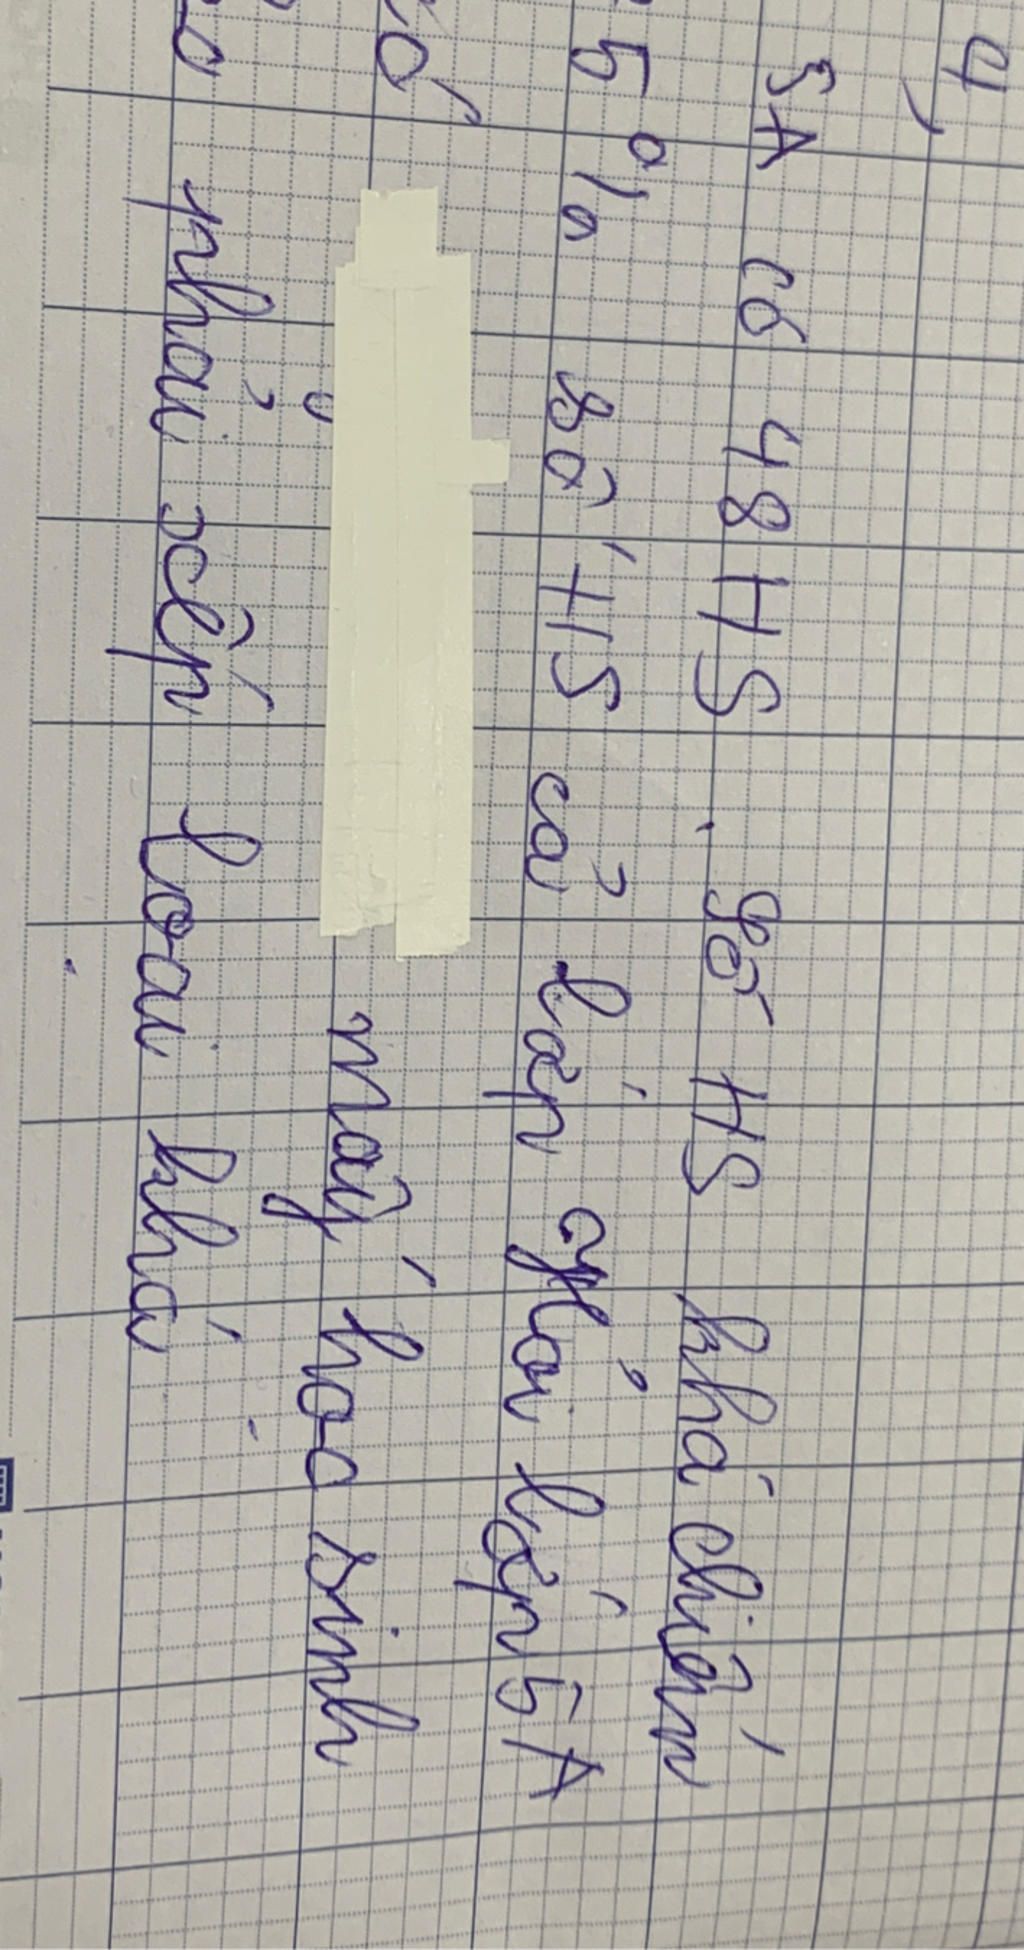 4,
5A có 48 HS. Số HS khá chiếm
5% số HS cả lớp. Hỏi lớp 5A
có mấy học sinh
phải xếp loại khá.